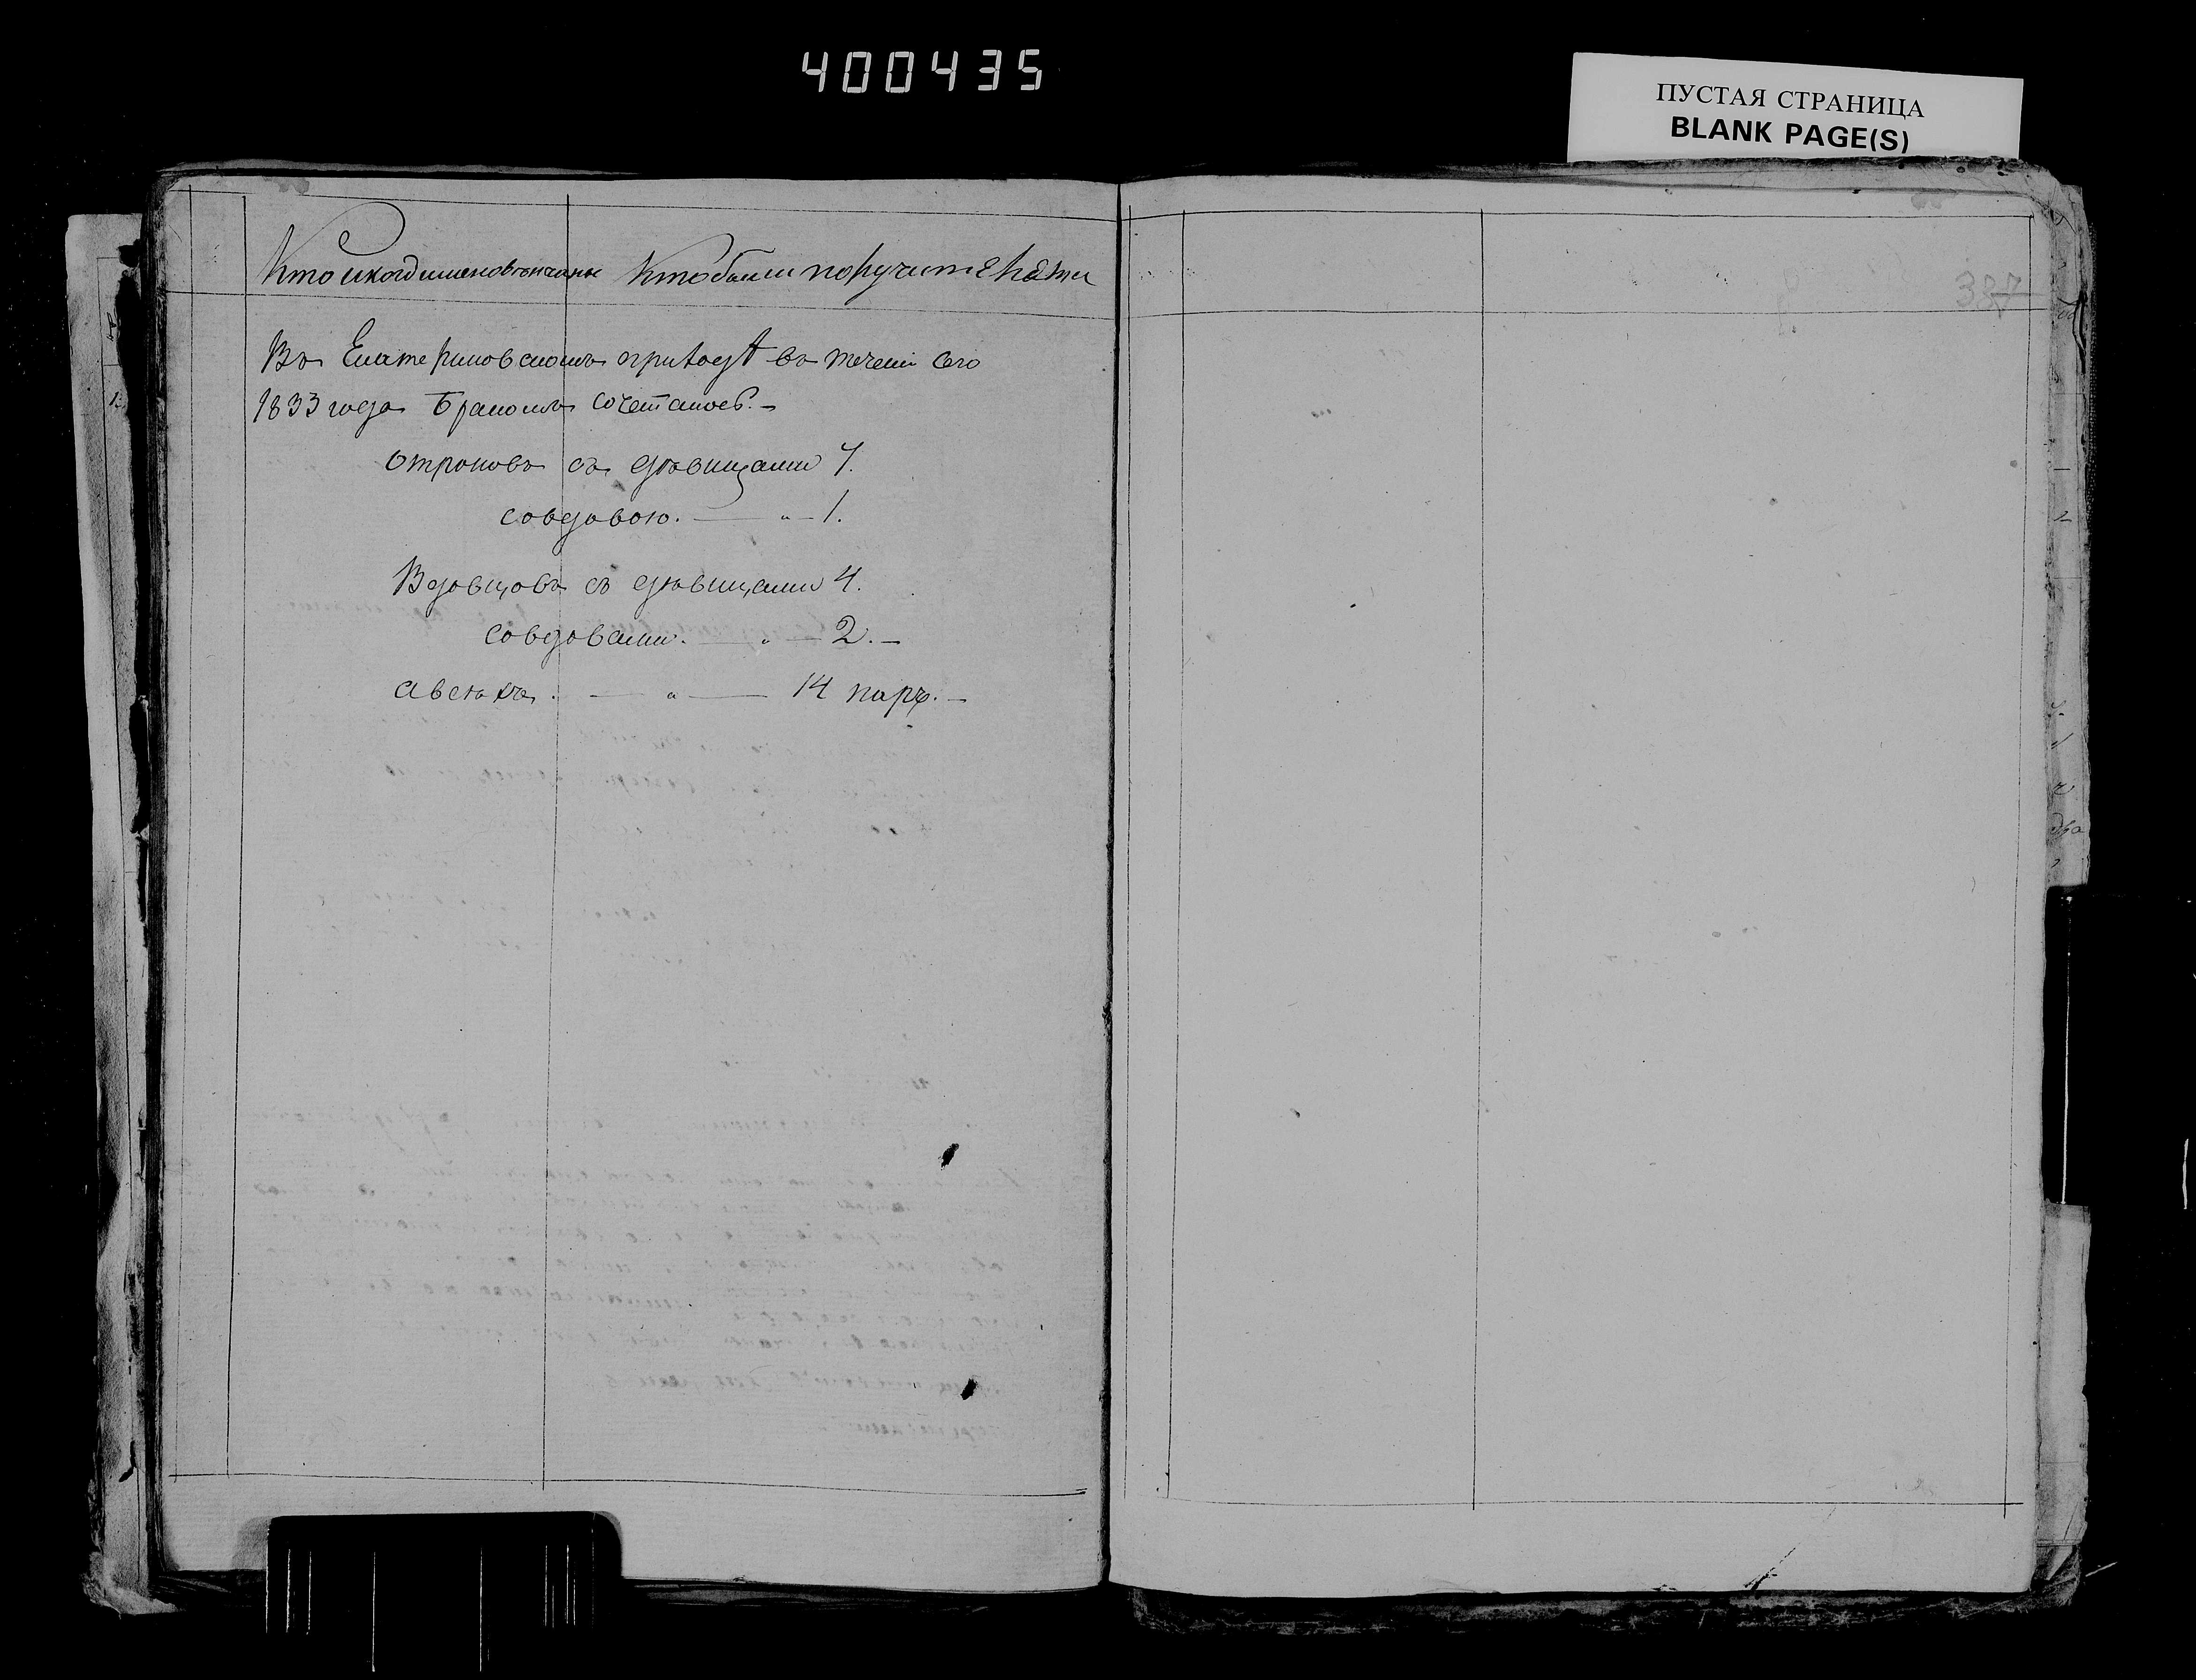 400435
ПУСТАЯ СТРАНИЦА
BLANK PAGE(S)
Кто и когд именов вѣнчаны
Кто были поручитеҍли
337
Въ Екатериновскомъ приходѣ въ течени сего
1833 года бракомъ сочеталось. —
отроковъ съ дѣвицами 7.
со вдовою. — „ — 1.
Вдовцовъ съ дѣвицами 4.
со вдовами. — „ — 2. —
а всѣхъ. — „ — 14 паръ. —